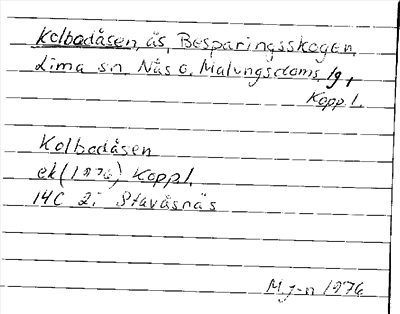 Kolbodåsen, ås, Besparingsskogen,
Lima sn. Näs o. Malungs doms. lg,
Kopp. l.
Kolbodåsen
ek (1976) Kopp l.
14C 2i Stavåsnäs
M. J-n 1976